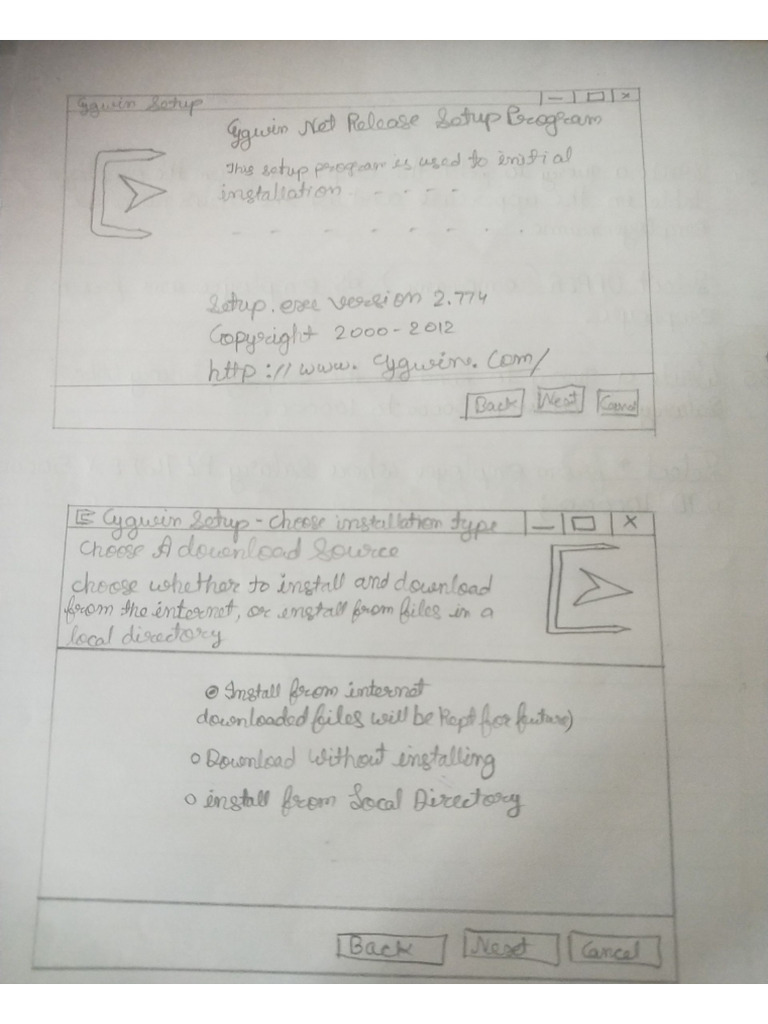 Cygwin Setup
Cygwin Net Release Setup Program
This setup program is used to initial
installation - - - -
- - - - - - . .
Setup.exe version 2.774
Copyright 2000-2012
http://www.cygwine.com/
Back Next Cancel
Cygwin Setup - Choose installation type
Choose A download Source
choose whether to install and download
from the internet, or install from files in a
local directory
Install from internet
downloaded files will be Kept for future)
Download Without installing
install from Local Directory
Back Next Cancel